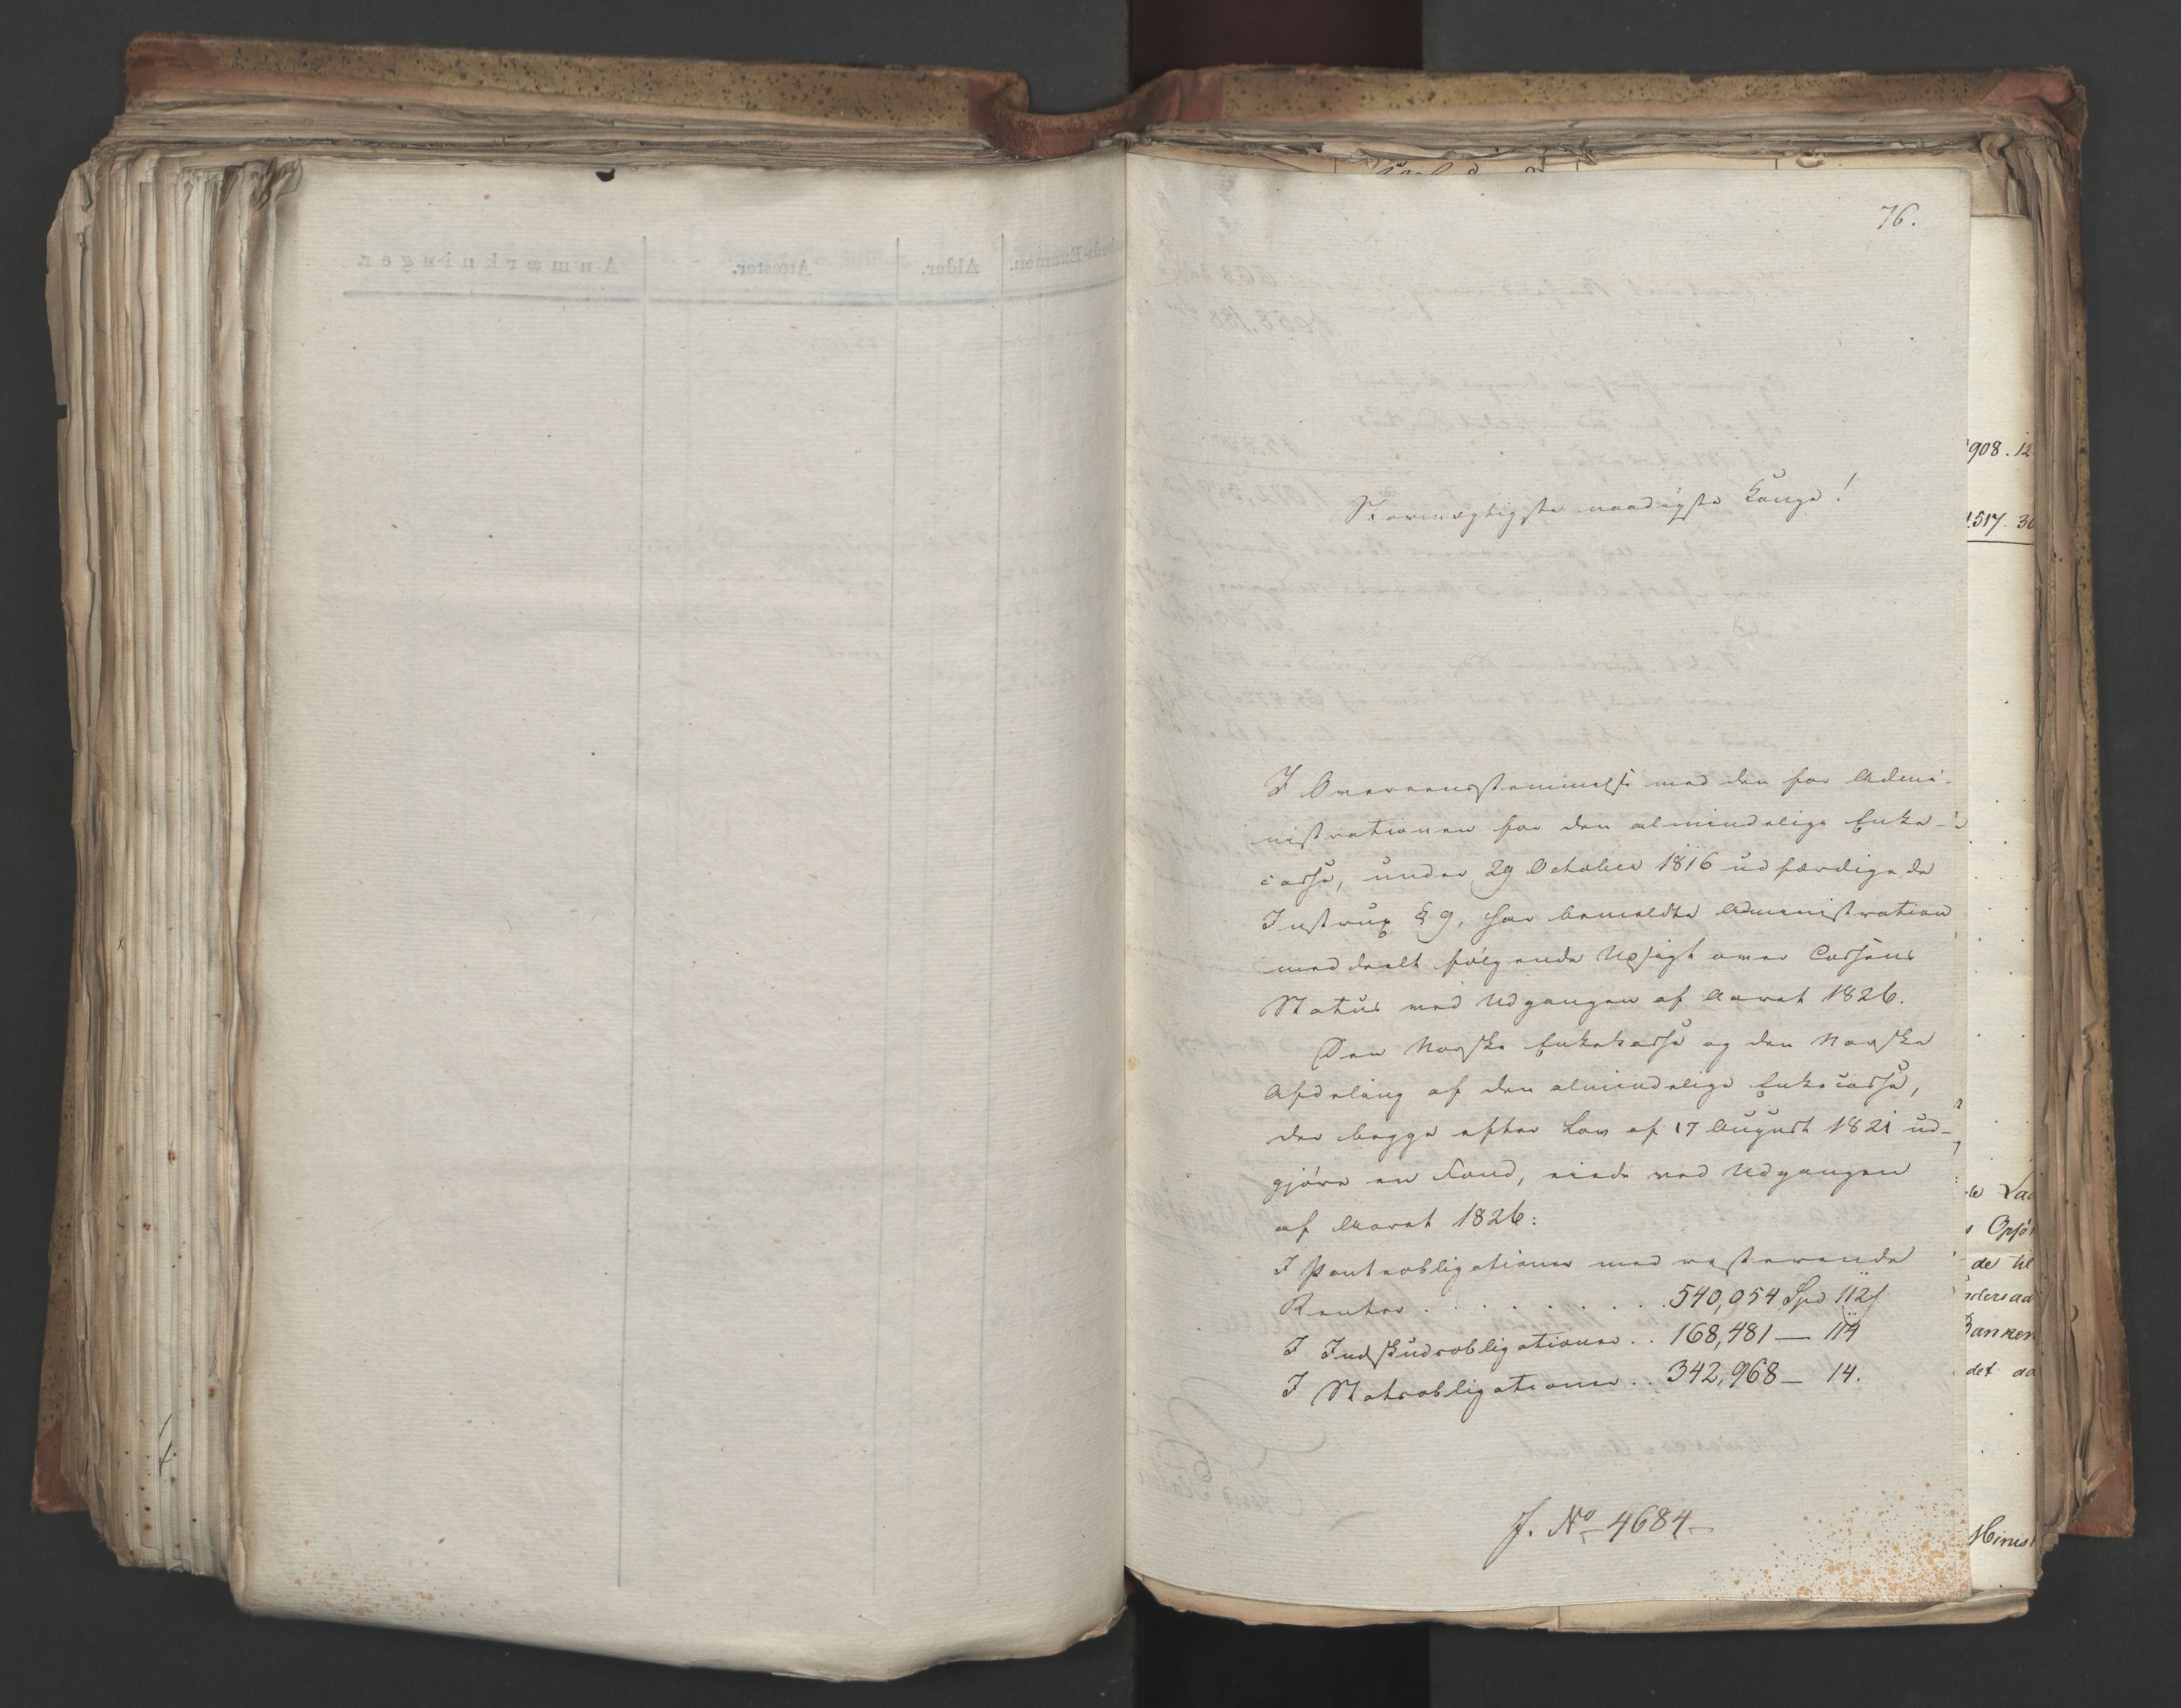 76.
Stormægtigste naadigste Konge!
I Overeensstemmelse med den for Admi-
nistrationen for den almindelige Enke-
casse, under 29 October 1816 udfærdigede
Instrux § 9, har bemeldte Administration
meddeelt følgende Udsigt over Cassens
Status ved Udgangen af Aaret 1826.
Den Norske Enkekasse og den Norske
Afdeling af den almindelige Enkecasse,
der begge efter Lov af 17 August 1821 ud-
gjøre en Fond, eiede ved Udgangen
af Aaret 1826:
I Pantobligationer med resterende
Renter . . . . . . . . 540,054 Spd 112 s
I Indskudsobligationer . . 168,481 — 114
I Statsobligationer . . 342,968 — 14.
J. No 4684
908. 12
517. 30
de til
Banken
det